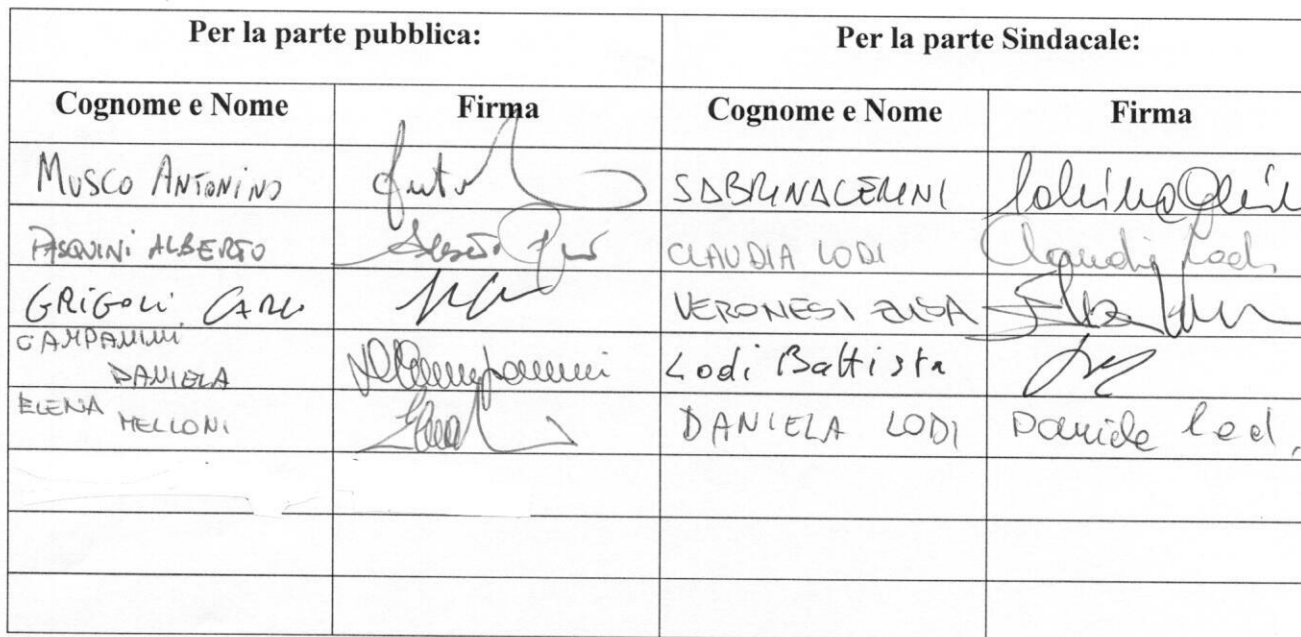 Per la parte pubblica: Per la parte Sindacale:
Cognome e Nome Firma Cognome e Nome Firma
MUSCO ANTONINO SABRINA CERINI
PASQUINI ALBERTO CLAUDIA LODI Claudia Lodi
GRIGOLI CARLO VERONESI ELISA
CAMPANINI
DANIELA Lodi Battista
ELENA
MELLONI DANIELA LODI Daniela Lodi